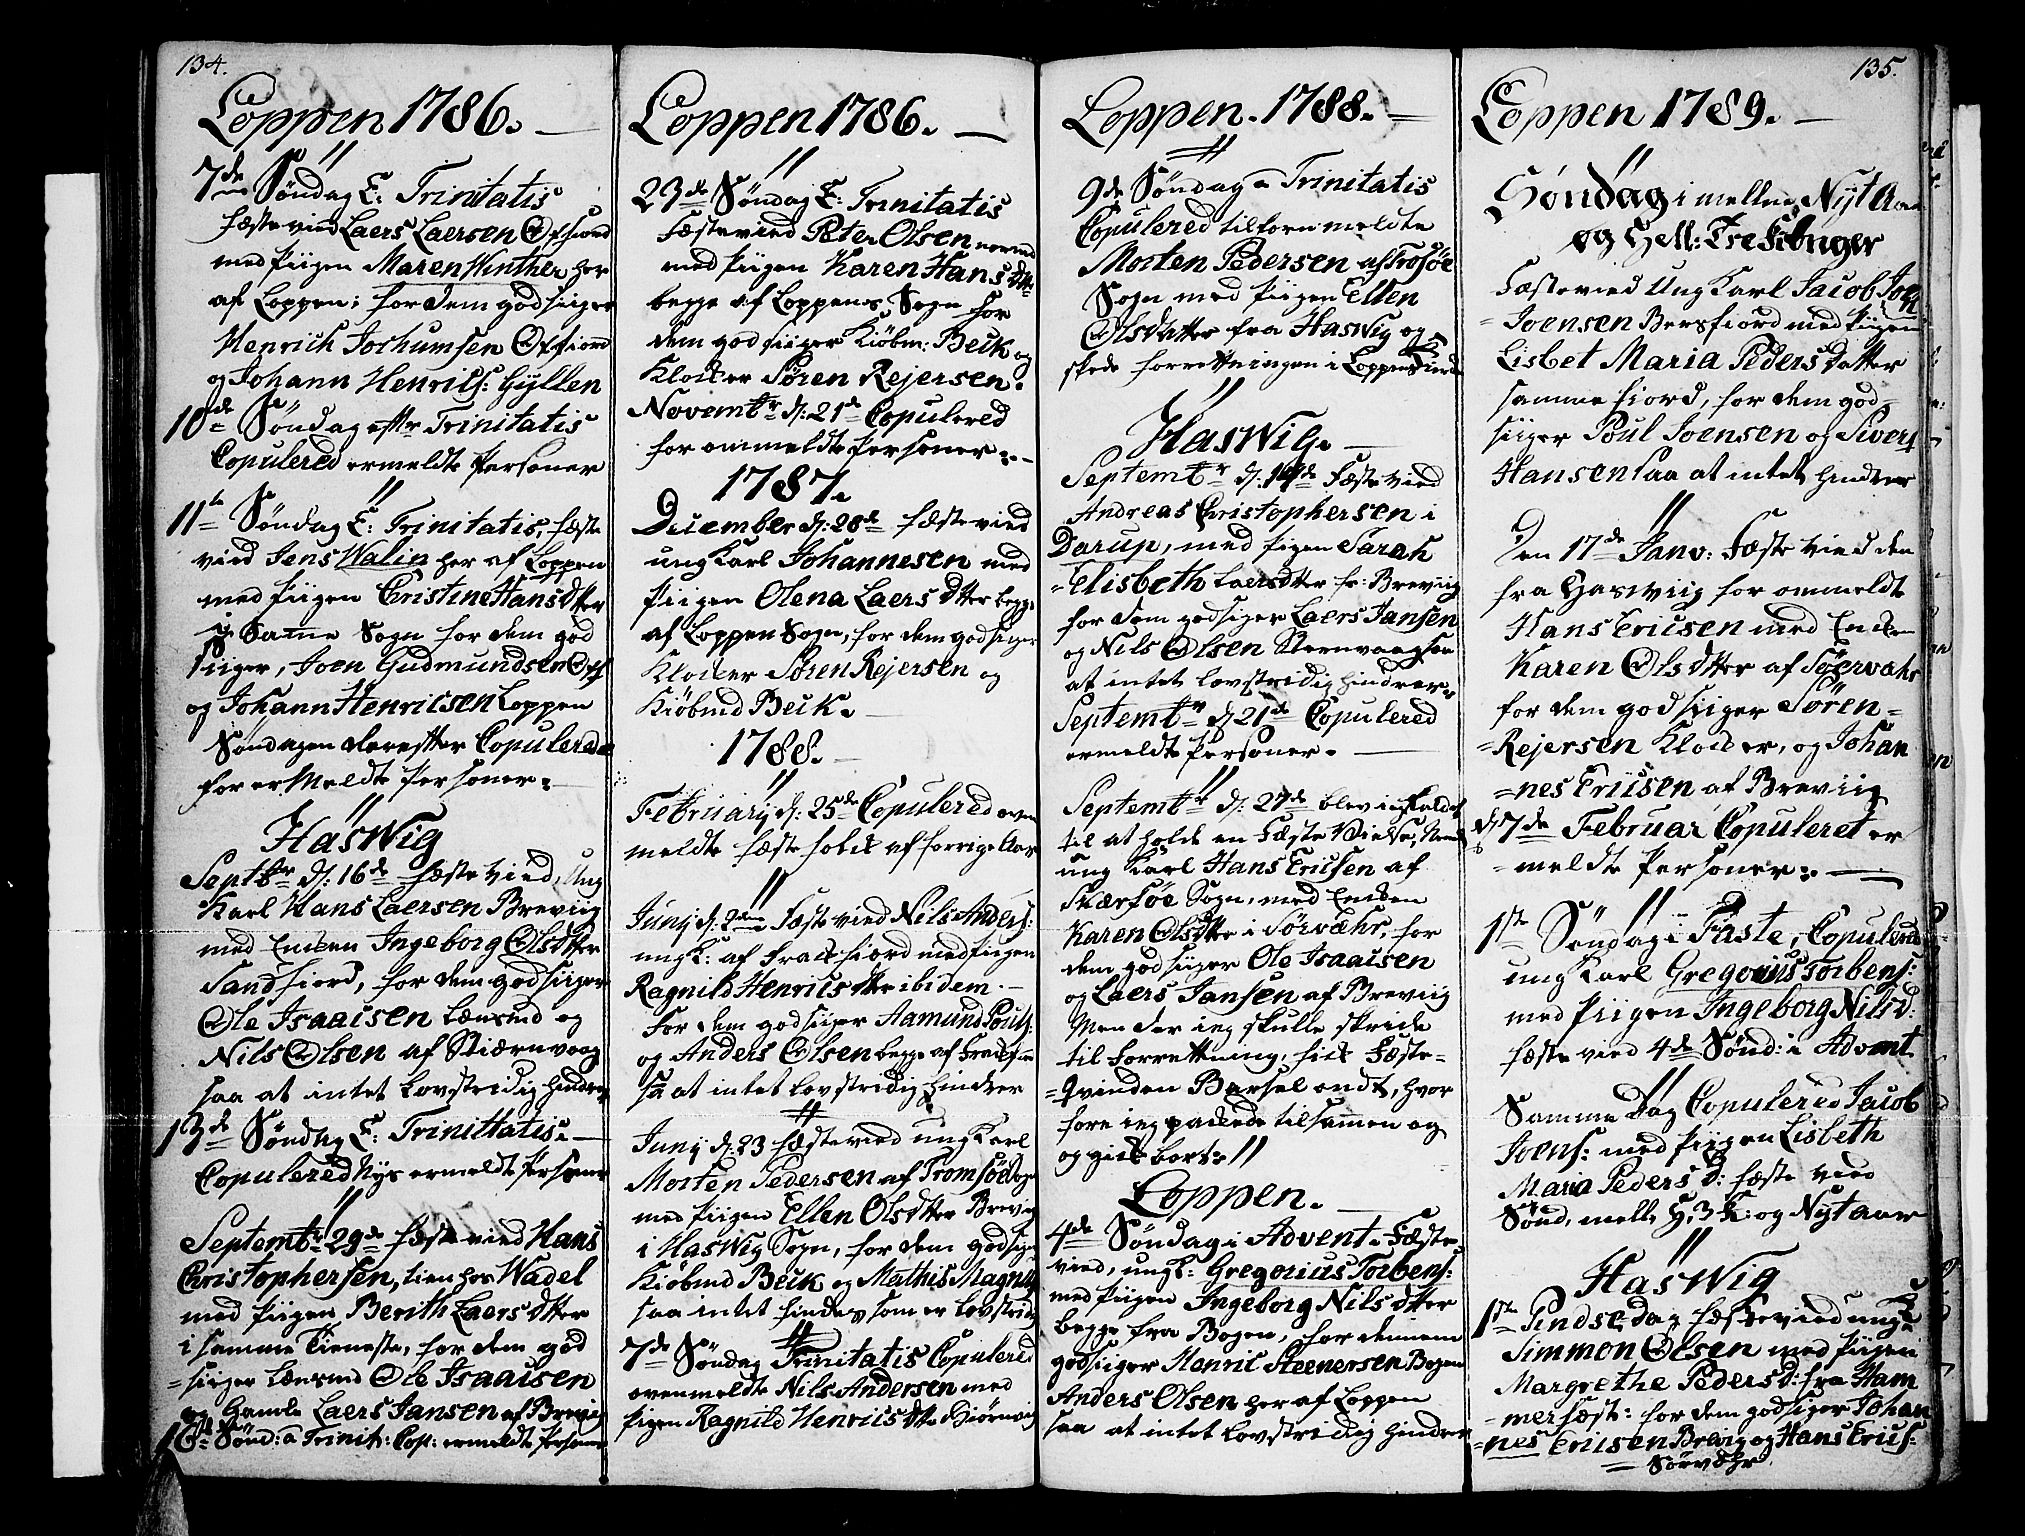 134.
Loppen 1786.
7de Søndag E: Trinitatis
fæsteviet Laers Laersen Øxfiord
med Piigen Maren Winther her
af Loppen; for dem godsiiger
Henrich Jochumsen Øxfiord
og Johann Henrichs: Gyllen
10de Søndag efftr Trinitatis
Copulered ermeldte Personer
11te Søndag E: Trinitatis, fæste
vied Jens Walin her af Loppen
med Piigen Cristine Hans Dtter
i Samme Sogn for dem god
siiger, Joen Gudmundsen Øxf
og Johann Henricsen Loppen
Søndagen derefter Copulerede
for er Meldte Personer.
Haswig
Septbr d: 16de fæste vied, Ung
Karl Hans Laersen Breviig
med Enken Ingeborg Olsdtter
Sandfiord, for dem godsiiger
Ole Isaaisen Lænsmd og
Nils Olsen af Stiærnvaag
saa at intet Lovstridig hindrer
13de Søndag E: Trinittatis
Copulered Nys ermeldte Personer
Septembr 29de fæste vied Hans
Christophersen, tien hos Wadel
med Piigen Berith Laers Dtter
i samme Tieneste, for dem god
siiger Lænsmd Ole Isaaisen
og Gamle Laers Jansen af Brevig
16de Sønd: a Trinit: Cop: ermeldte Personer
Loppen 1786.
23de Søndag E: Trinitatis
Fæstevied Peter Olsen
med Piigen Karen Hans Dtter
begge af Loppens Sogn for
dem god siiger Kiøbm: Beck og
Klocker Søren Rejersen.
Novembr d: 21de Copulered
for ommeldte Personer.
1787.
December d: 28de fæstevied
ung Karl Johannesen med
Piigen Olena Laers Dtter begge
af Loppen Sogn, for dem godsiiger
Klocker Søren Rejersen og
Kiøbmd Beck.
1788.
Februarÿ d: 25de Copulered oven
meldte fæstefolck af forrige Aar
Junÿ d: 2den Fæstevied Nils Anders:
ungK: af Frackfiord med Piigen
Ragnild Henrics dtter ibidem.
For dem godsiiger Aamund Pouls:
og Anders Olsen begge af Frackfior
sa at intet Lovstridig Hindrer
Junÿ d: 23 fæstevied ung Karl
Morten Pedersen af Tromsøe Sogn
med Piigen Ellen Olsdtter Brevig
i Haswig Sogn, for dem godsiger
Kiøbmd Beck og Mathis Magnus
saa intet findes som er Lovstridig
7de Søndag Trinitatis Copulered
ovenmeldte Nils Andersen med
Pigen Ragnild Henrics dtter
Loppen. 1788.
9de Søndag a Trinitatis
Copulered tilforn meldte
Morten Pedersen af Trosøe
Sogn med Piigen Ellen
Olsdatter fra Haswig og
skede forrettningen i Loppen
Haswig.
Septembr d: 14de Fæste vied
Andreas Christophersen i
Darup, med Pigen Sarah
Elisbeth Laersdtter fr: Breviig
for dem godsiger Laers Jansen
og Nils Olsen Stiernvaag saa
at intet Lovstridig hindrer
Septembr d 21de Copulered
ermeldte Personer.
Septembr d: 27de blev ieg kaldet
til at holde en Fæste Vielse,
ung Karl Hans Ericsen af
Skiærføe Sogn, med Enken
Karen Olsdtter i Sørvæhr, for
dem godsiiger Ole Isaaisen
og Laers Jansen af Breviig
Men der ieg skulle skride
til Forrettning, fick Fæste-
Qvinden Barsel ondt, hvor
fore ieg packede tilsamen og
og gick bort.
Loppen.
4de Søndag i Advent Fæste
vied, ungK: Gregorius Torbens:
med Piigen Ingeborg Nils Dtter
begge fra Bogen, for dennem
godsiger Henric Steenersen Bogen
Anders Olsen her af Loppen
saa at intet Lovstridig hindrer
135.
Loppen 1789.
Søndag imellem Nyt Aar
og Hell: Tre Konger
Fæstevied Ung Karl Jacob Joen
Joensen Bersfiord med Piigen
Lisbet Maria Peders Datter
samme fiord, for dem god-
siiger Poul Joensen og Sivert
Hansen saa at intet hindrer
Den 17de Janv: Fæste vied den
fra Haswiig for ommeldt
Hans Ericsen med Enken
Karen Olsdtter af Søervahr
for dem godsiiger Søren
Rejersen Klocker, og Johan
nes Eriisen af Breviig
d 7de Februar Copuleret er
meldte Personer.
1ste Søndag i Faste, Copulered
ung Karl Gregorius Torbens:
med Piigen Ingeborg Nilsd:
fæste vied 4de Sønd: i Advent
Samme Dag Copulered Jacob
Joens: med Piigen Lisbeth
Maria Peders D: fæste vied
Sønd, mell, H, 3 K: og Nyt aar
Haswig
1ste Pindse Dag fæstevied ung K
Simmon Olsen med Piigen
Margrethe Peders D: fra Ham
merfæst: for dem godsiger Johan
nes Eriisen Brevig og Hans Erics:
Sørvæhr